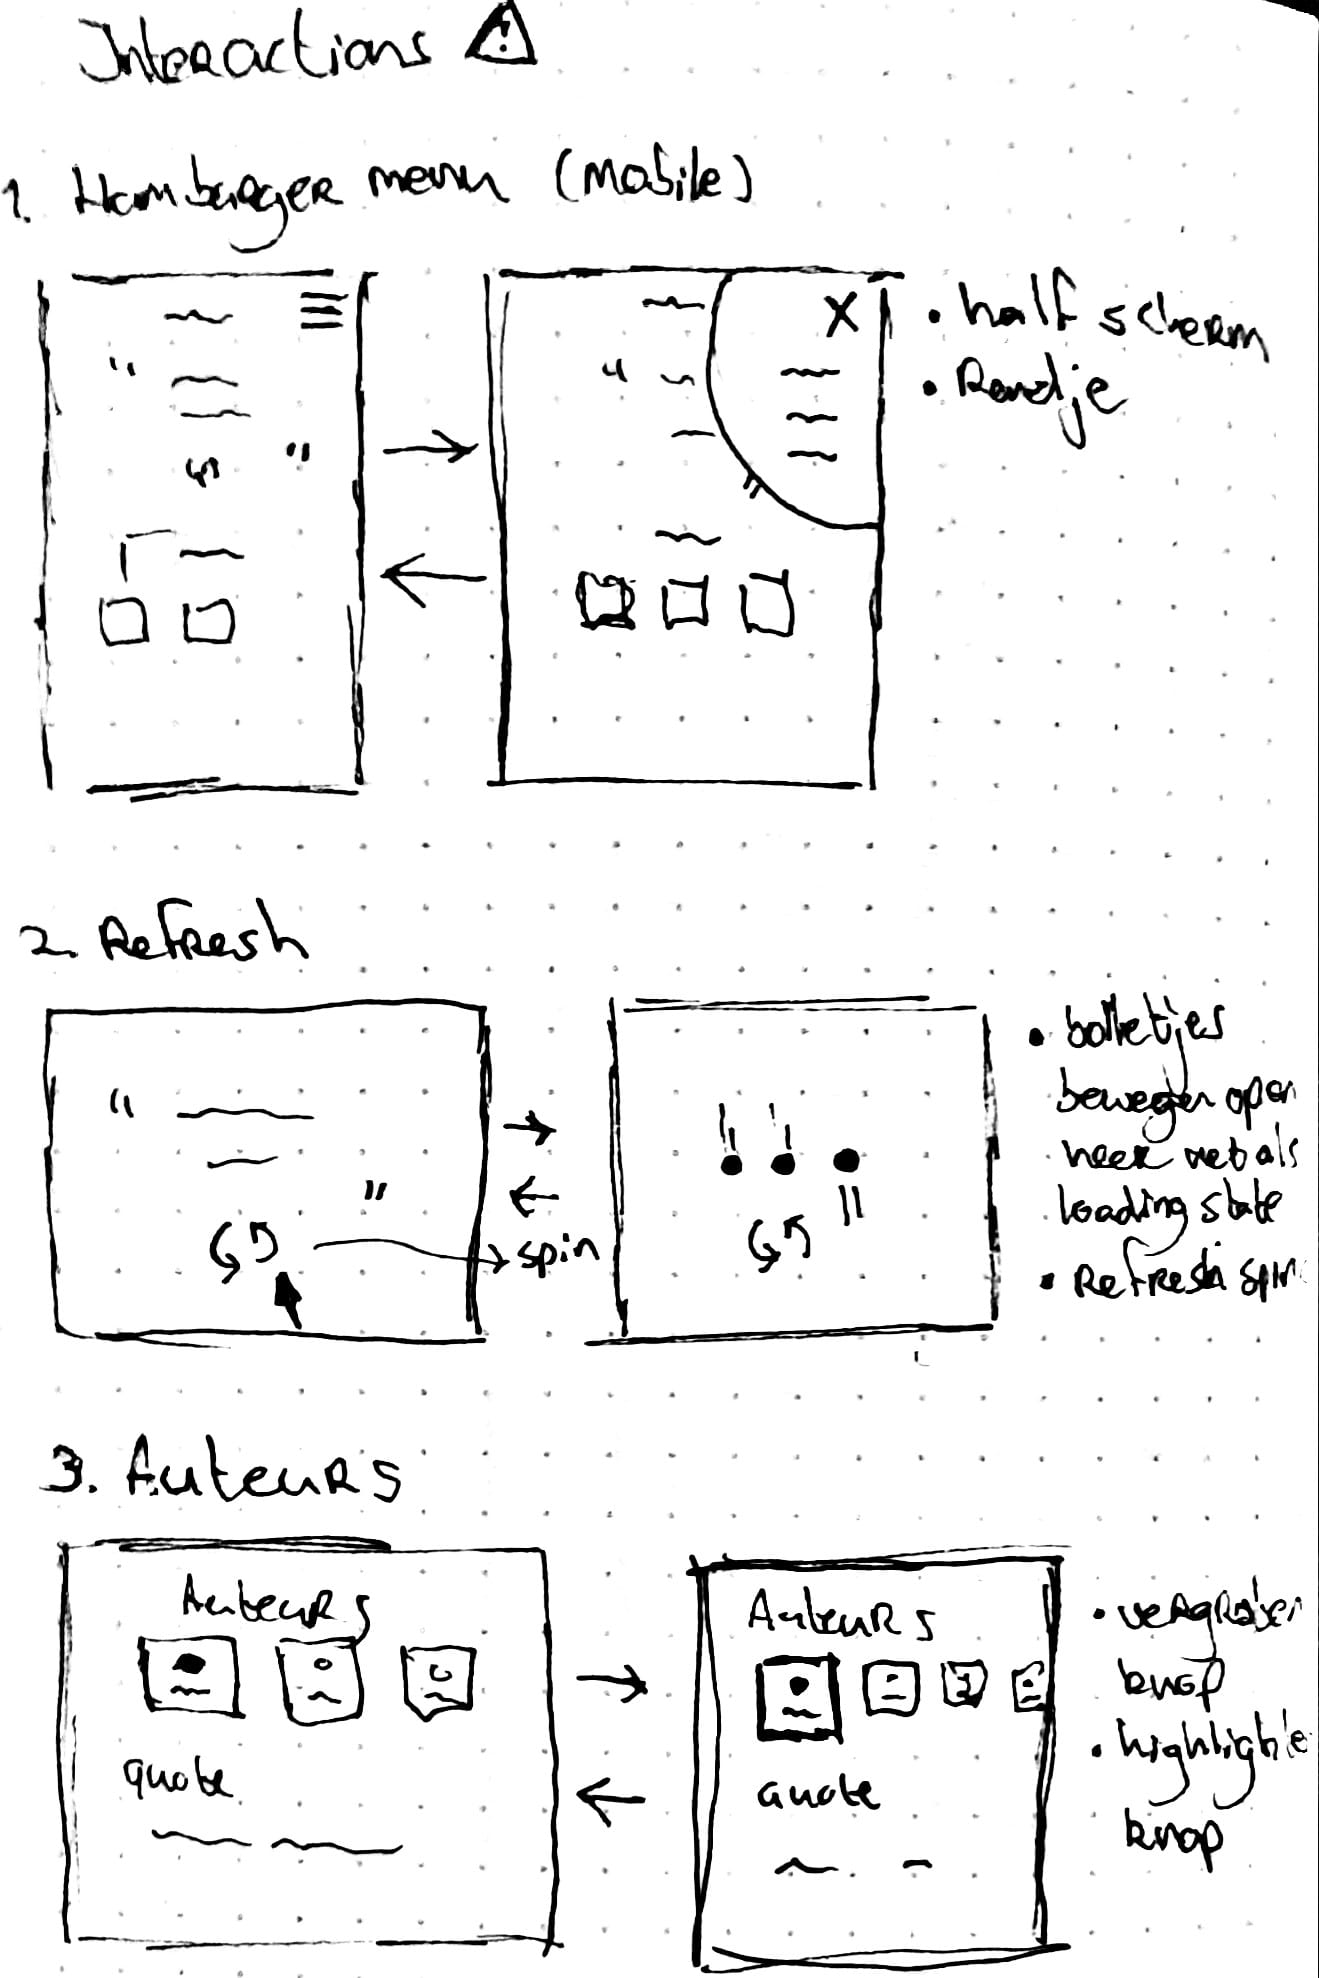 Interactions
1. Hamburger menu (mobile)
X
• half scherm
• Rondje
2. Refresh
spin
• bolletjes
bewegen op en
neer net als
loading state
• Refresh spin
3. Auteurs
Auteurs
quote
Auteurs
quote
• vergroten
knop
• highlight
knop